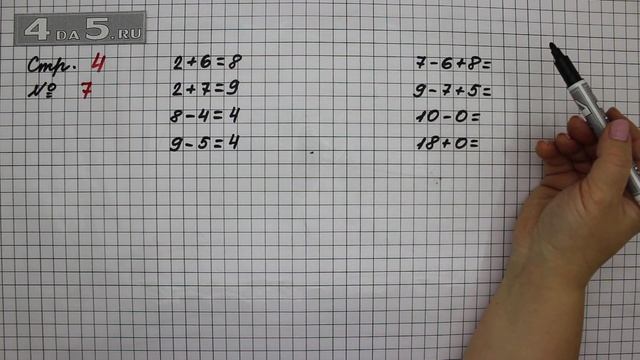 4 ДА 5.RU
Стр. 4
№ 7
2+6=8
2+7=9
8-4=4
9-5=4
7-6+8=
9-7+5=
10-0=
18+0=